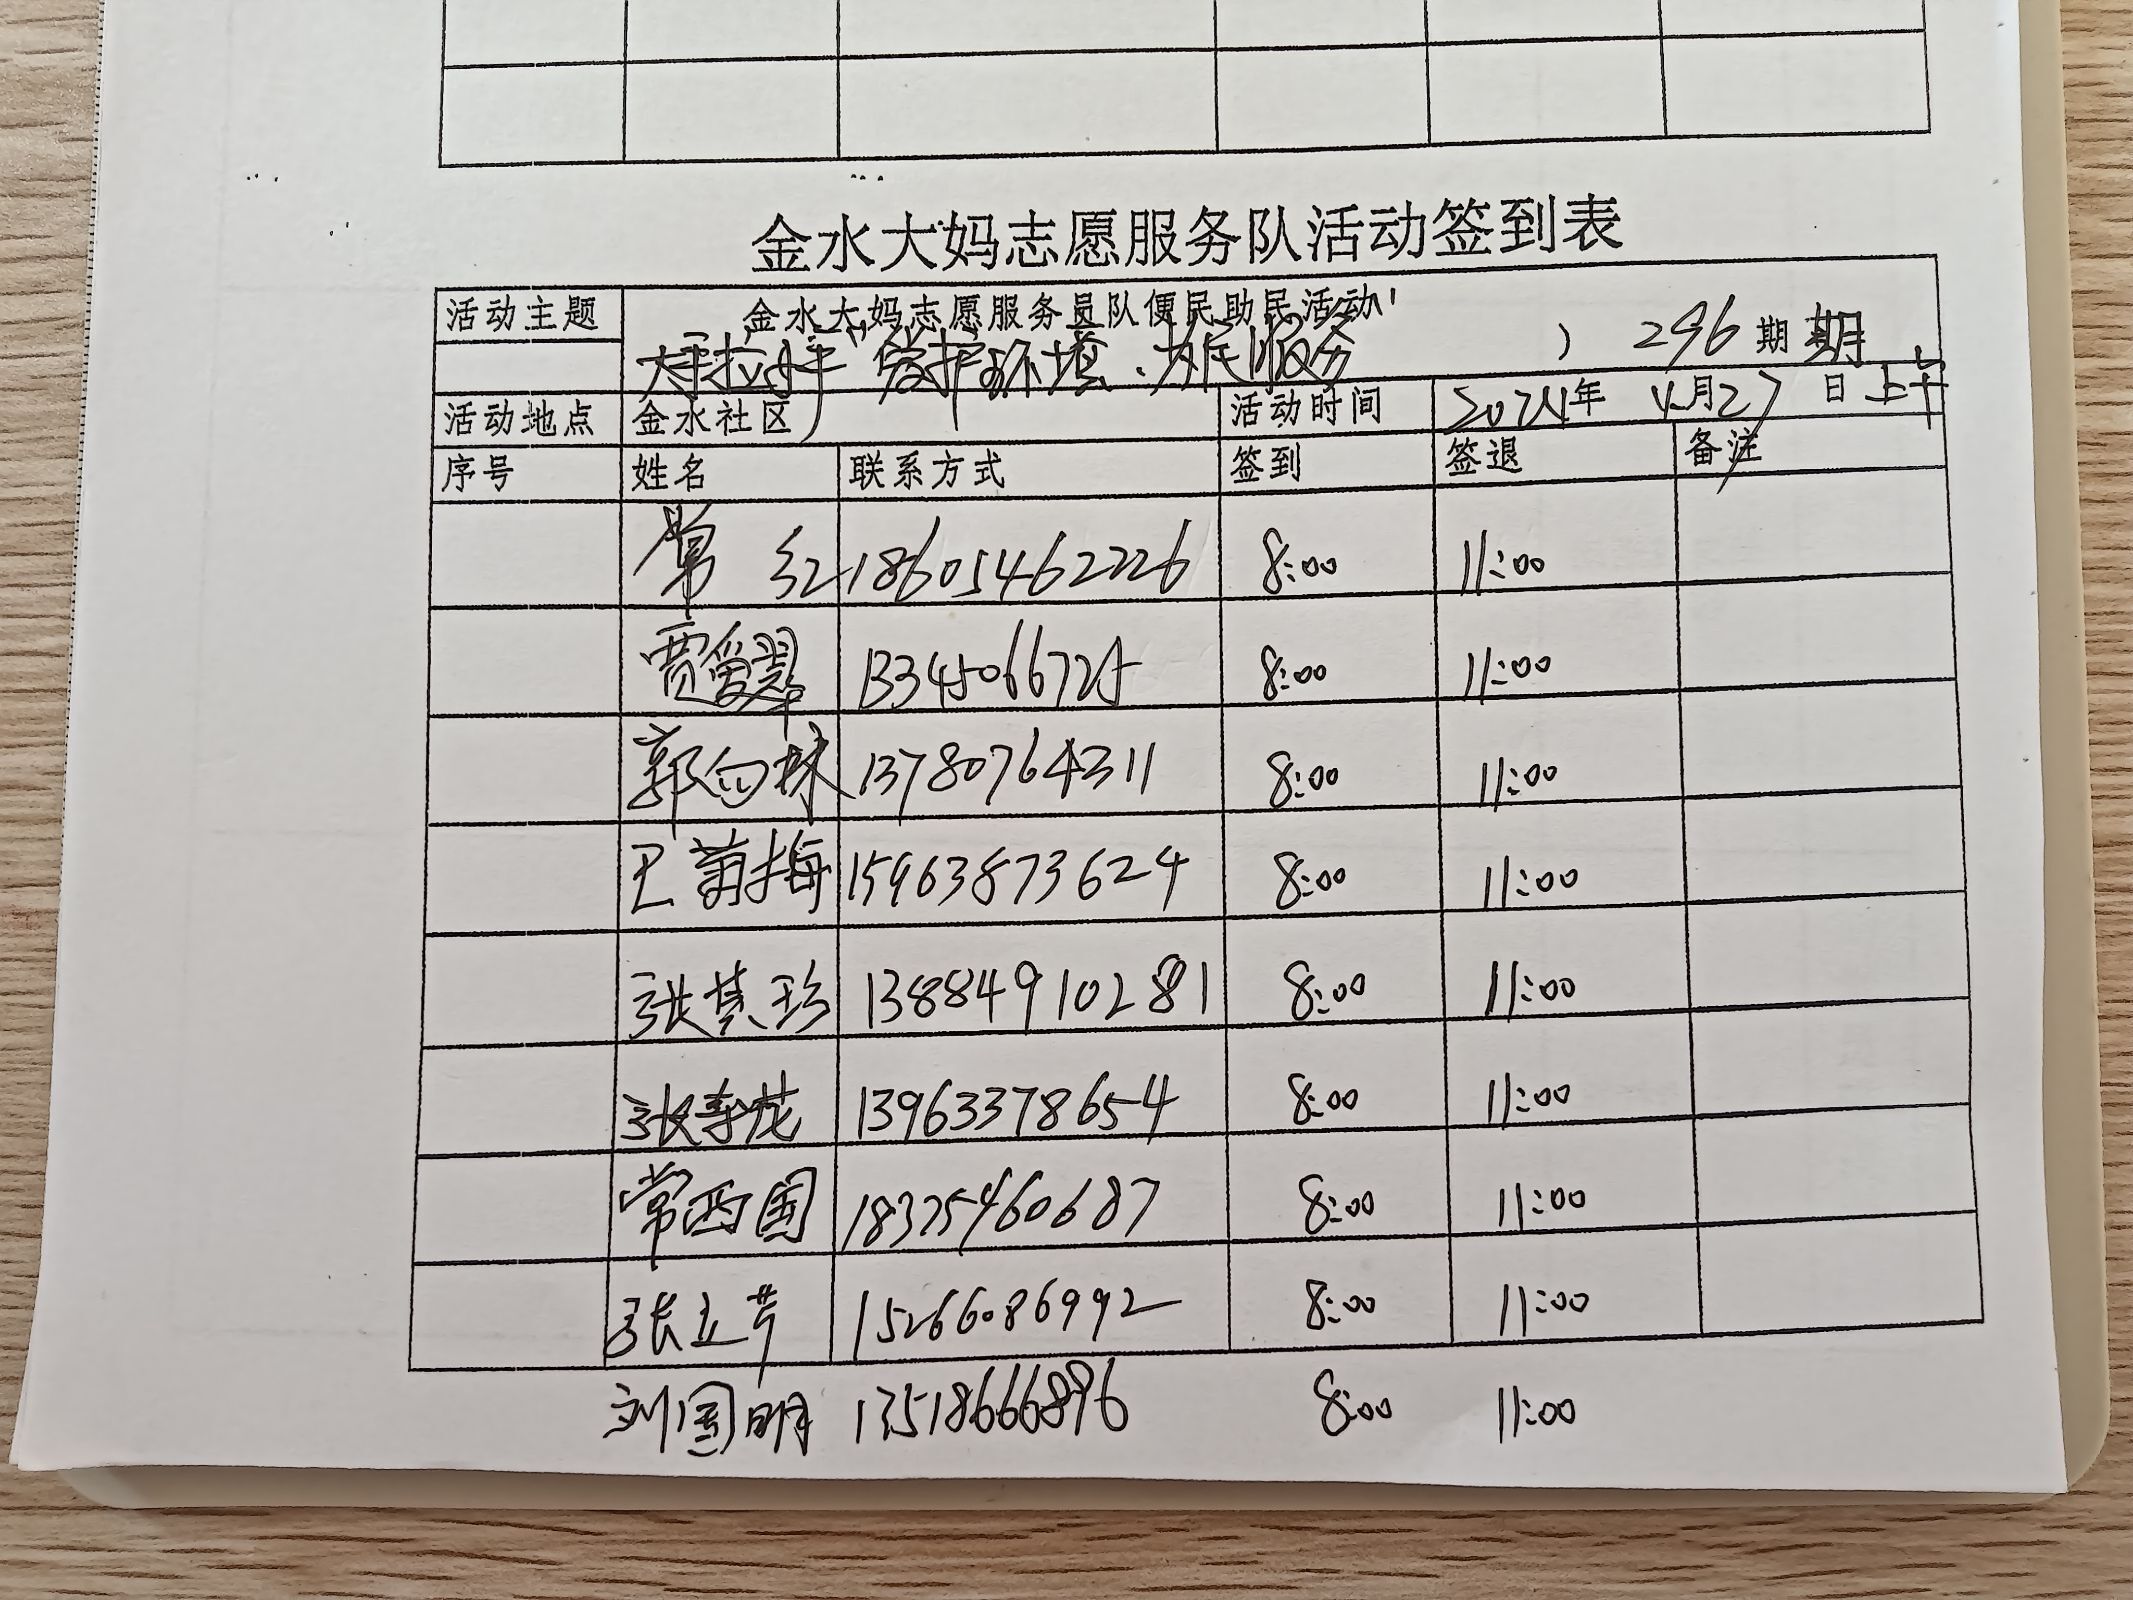 金水大妈志愿服务队活动签到表
活动主题 金水大妈志愿服务员队便民助民活动
大手拉小手"爱护环境、为民服务 ） 296期 期
活动地点 金水社区 活动时间 2024年 4月27日 上午
序号 姓名 联系方式 签到 签退 备注
常 红 18605462226 8:00 11:00
贾爱翠 13345066725 8:00 11:00
郭向妹 13780764311 8:00 11:00
王菊梅 15963873624 8:00 11:00
张其珍 13884910281 8:00 11:00
张春花 13963378654 8:00 11:00
常西国 18325460687 8:00 11:00
张立芹 15266086992 8:00 11:00
刘国明 13518666896 8:00 11:00